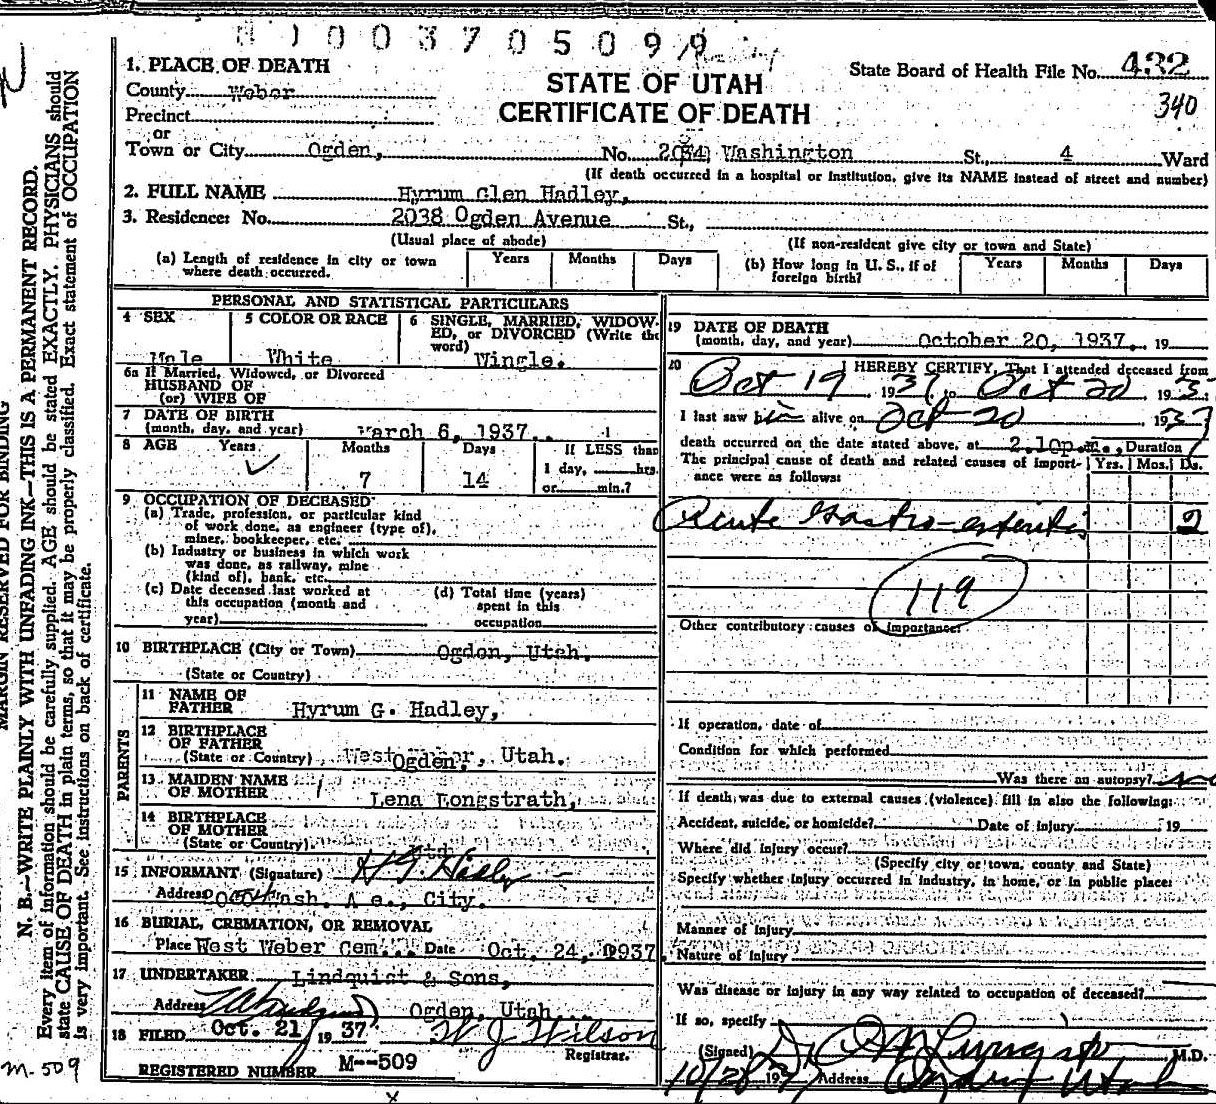 0 0 3 7 0 5 0 9 9
1. PLACE OF DEATH
County Weber
Precinct
or
Town or City Ogden, No. Washington St., 4 Ward
STATE OF UTAH
CERTIFICATE OF DEATH
State Board of Health File No. 432
340
(If death occurred in a hospital or institution, give its NAME instead of street and number)
2. FULL NAME Hyrum Glen Hadley,
3. Residence: No. 2038 Ogden Avenue St.,
(Usual place of abode) (If non-resident give city or town and State)
(a) Length of residence in city or town where death occurred. Years Months Days
(b) How long in U. S., if of foreign birth? Years Months Days
PERSONAL AND STATISTICAL PARTICULARS
4 SEX Male
5 COLOR OR RACE White
6 SINGLE, MARRIED, WIDOWED, or DIVORCED (Write the word) Wingle.
6a If Married, Widowed, or Divorced
HUSBAND OF
(or) WIFE OF
7 DATE OF BIRTH
(month, day, and year) March 6, 1937.
8 AGE Years Months Days If LESS than
7 14 1 day, hrs.
or min.?
9 OCCUPATION OF DECEASED
(a) Trade, profession, or particular kind
of work done, as engineer (type of),
miner, bookkeeper, etc.
(b) Industry or business in which work
was done, as railway, mine
(kind of), bank, etc.
(c) Date deceased last worked at
this occupation (month and
year)
(d) Total time (years)
spent in this
occupation
10 BIRTHPLACE (City or Town) Ogden, Utah.
(State or Country)
PARENTS
11 NAME OF
FATHER Hyrum G. Hadley,
12 BIRTHPLACE
OF FATHER
(State or Country) West Weber, Ogden, Utah.
13 MAIDEN NAME
OF MOTHER Lena Longstrath,
14 BIRTHPLACE
OF MOTHER
(State or Country)
15 INFORMANT (Signature) H G Hadley
Address Wash. A e., City.
16 BURIAL, CREMATION, OR REMOVAL
Place West Weber Cem. Date Oct. 24, 1937
17 UNDERTAKER Lindquist & Sons,
Address Ogden, Utah
18 FILED Oct. 21 1937 W J Wilson
Registrar.
REGISTERED NUMBER M--509
19 DATE OF DEATH
(month, day, and year) October 20, 1937. 19
20 I HEREBY CERTIFY, That I attended deceased from
Oct 19 1937, to Oct 20 193
I last saw him alive on Oct 20 1937
death occurred on the date stated above, at 2.10p.m., Duration
The principal cause of death and related causes of importance were as follows: Yrs. Mos. Ds.
Acute Gastro-enteritis 2
119
Other contributory causes of importance:
If operation, date of
Condition for which performed
Was there an autopsy? no
If death was due to external causes (violence) fill in also the following:
Accident, suicide, or homicide? Date of injury 19
Where did injury occur?
(Specify city or town, county and State)
Specify whether injury occurred in industry, in home, or in public place:
Manner of Injury
Nature of Injury
Was disease or injury in any way related to occupation of deceased?
If so, specify
(Signed) M.D.
Address Ogden Utah
MARGIN RESERVED FOR BINDING
N. B.—WRITE PLAINLY WITH UNFADING INK—THIS IS A PERMANENT RECORD.
Every item of information should be carefully supplied. AGE should be stated EXACTLY. PHYSICIANS should
state CAUSE OF DEATH in plain terms, so that it may be properly classified. Exact statement of OCCUPATION
is very important. See instructions on back of certificate.
M-509